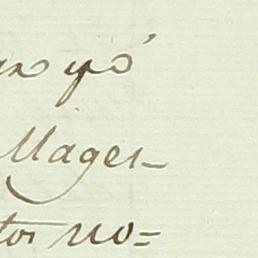 yó
Mages-
tos no=